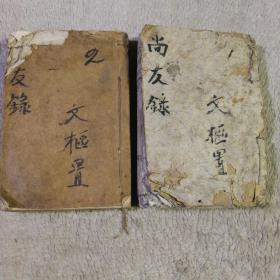 友錄
2
文樞置
尚友錄
文樞置